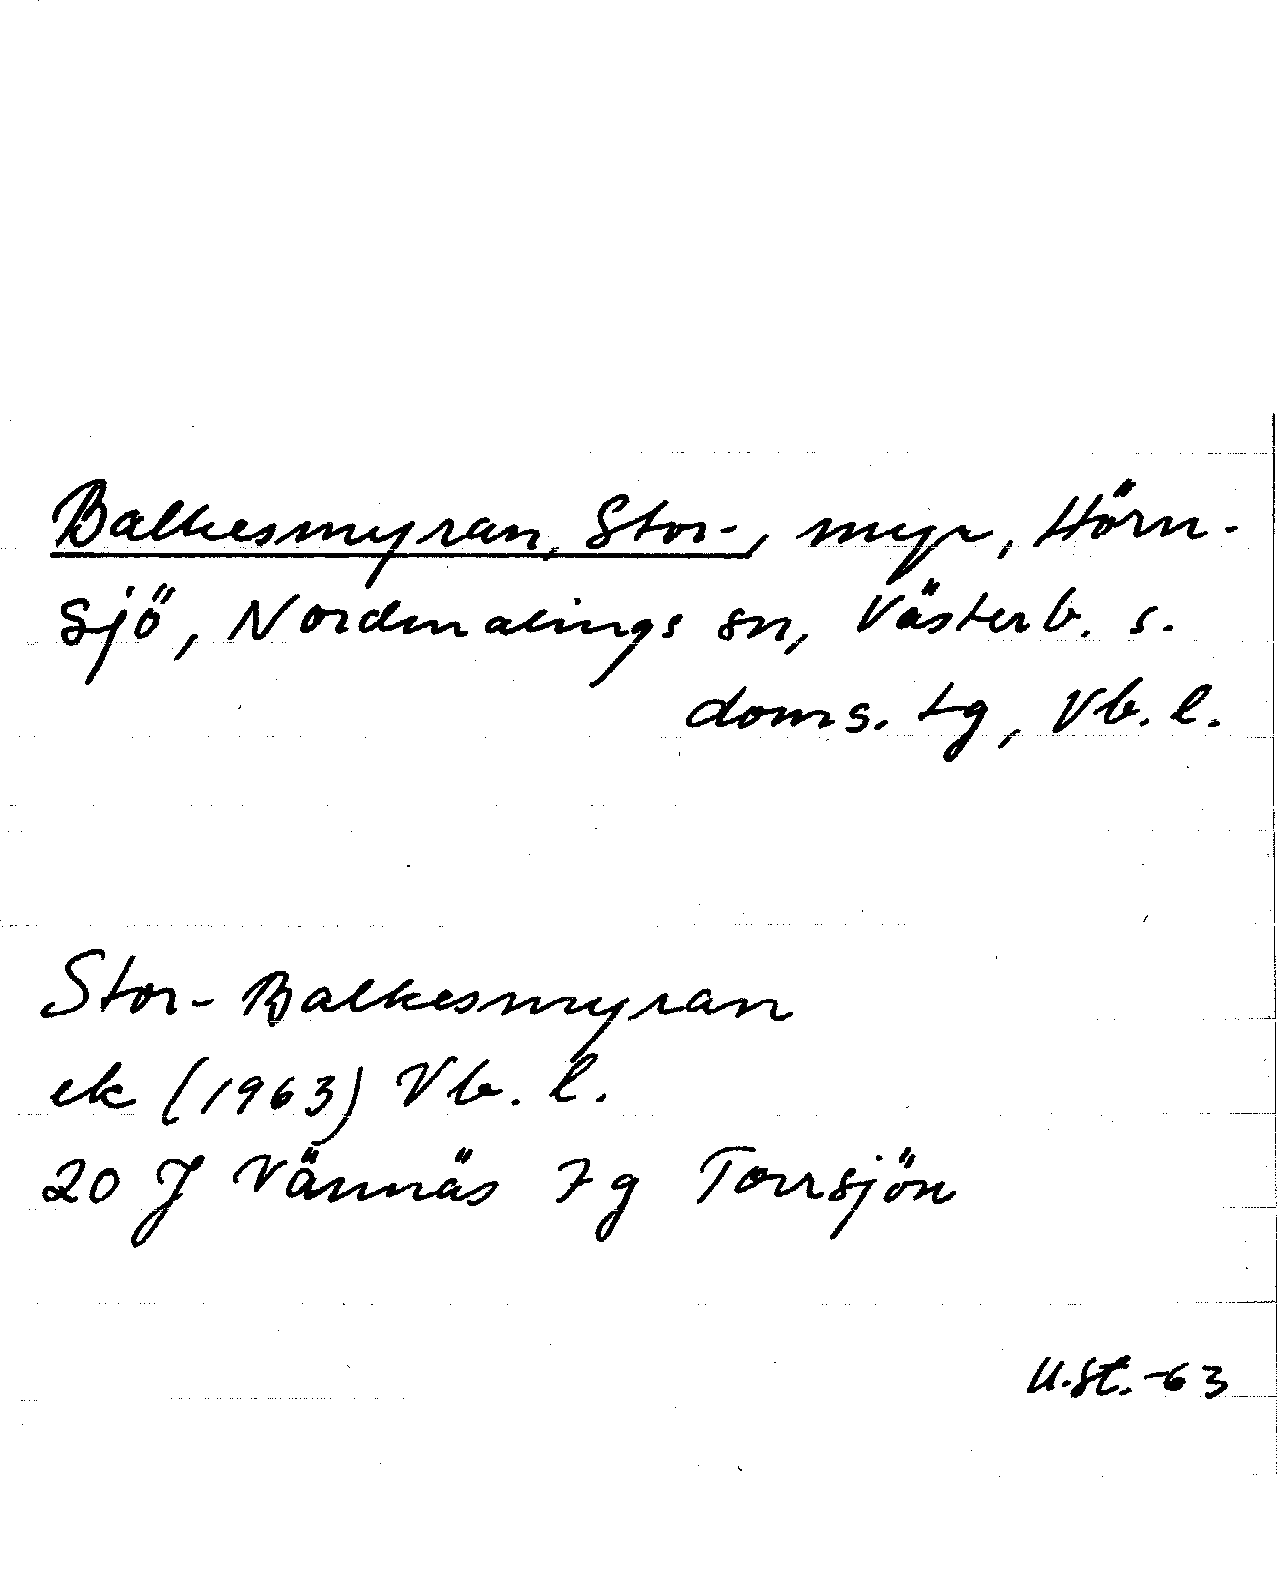 Balkesmyran, Stor-, myr, Hörn-
sjö, Nordmalings sn, Västerb. s.
doms. tg, Vb. l.
Stor-Balkesmyran
ek (1963) Vb. l.
20 J Vännäs 7 g Torrsjön
U.St. -63